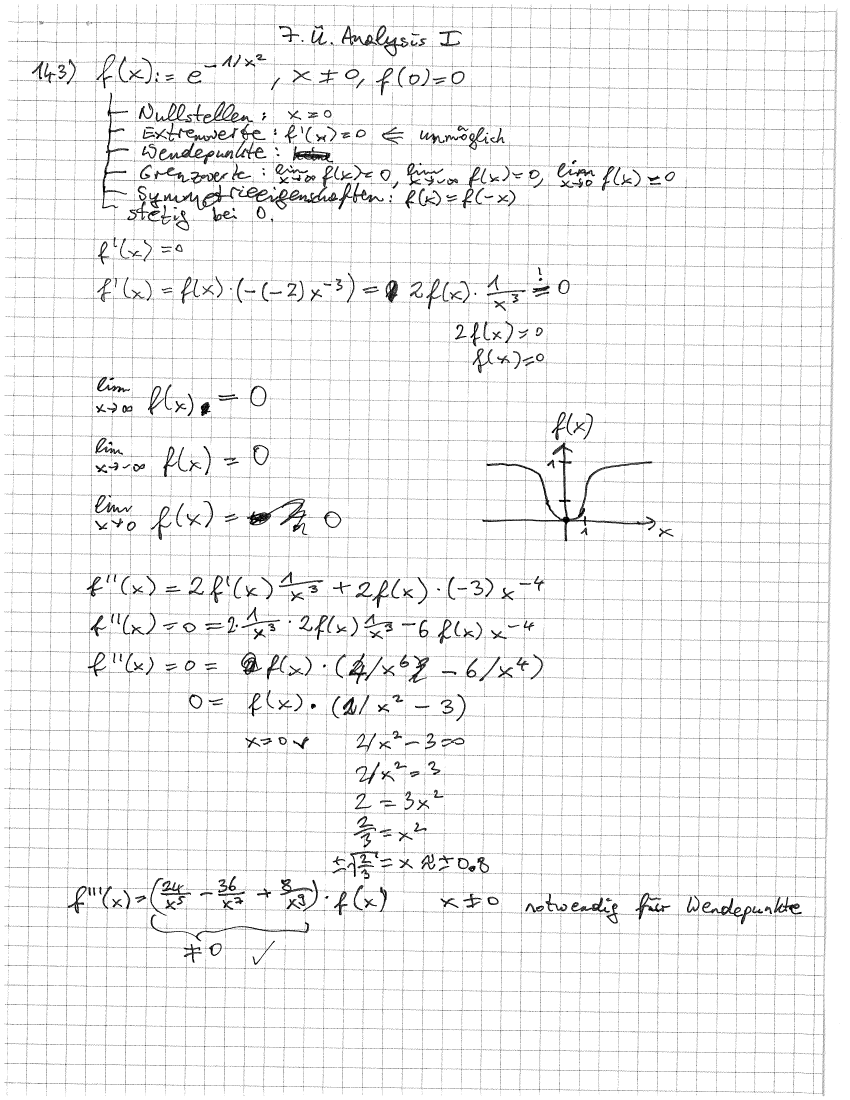 7. Ü. Analysis I
143) f(x) := e^{-1/x²}, x ≠ 0, f(0)=0
Nullstellen: x=0
Extremwerte: f'(x)=0 ⇐ unmöglich
Wendepunkte:
Grenzwerte: lim x→∞ f(x)=0, lim x→-∞ f(x)=0, lim x→0 f(x)=0
Symmetrieeigenschaften: f(x)=f(-x)
stetig bei 0.
f'(x)=0
f'(x) = f(x)·(-(-2)x^{-3}) = 2f(x)·1/x³ =! 0
2f(x)=0
f(x)=0
lim x→∞ f(x) = 0
lim x→-∞ f(x) = 0
lim x→0 f(x) = 0
f(x)
1
1
x
f''(x) = 2f'(x) 1/x³ + 2f(x)·(-3)x^{-4}
f''(x) = 0 = 2·1/x³·2f(x) 1/x³ - 6 f(x) x^{-4}
f''(x) = 0 = f(x)·(4/x⁶ - 6/x⁴)
0 = f(x)·(2/x² - 3)
x=0 ∨ 2/x² - 3=0
2/x² = 3
2 = 3x²
2/3 = x²
±√(2/3) = x ≈ ±0.8
f'''(x) = (24/x⁵ - 36/x⁷ + 8/x⁹)·f(x) x ≠ 0 notwendig für Wendepunkte
≠ 0 ✓